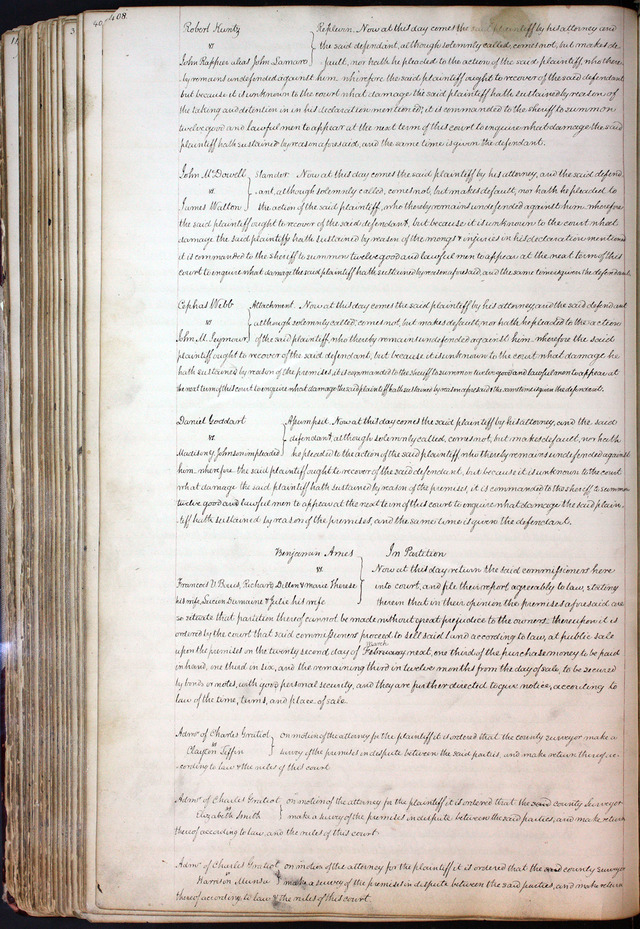 408.
Robert Huntz } Replevin. Now at this day comes the said plaintiff by his attorney and
vs the said defendant, although solemnly called, comes not, but makes de-
John Rapfies alias John Lamaro } fault, nor hath he pleaded to the action of the said plaintiff, who there-
by remains undefended against him wherefore the said plaintiff ought to recover of the said defendant
but because it is unknown to the court what damage the said plaintiff hath sustained by reason of
the taking and detention in his declaration mentioned, it is commanded to the sheriff to summon
twelve good and lawful men to appear at the next term of this court to enquire what damage the said
plaintiff hath sustained by reason aforesaid, and the same time is given the defendant.
John McDowell } Slander. Now at this day comes the said plaintiff by his attorney, and the said defend-
vs ant, although solemnly called, comes not, but makes default, nor hath he pleaded to
James Walton } the action of the said plaintiff, who thereby remains undefended against him. wherefore
the said plaintiff ought to recover of the said defendant, but because it is unknown to the court what
damage the said plaintiff hath sustained by reason of the wrongs & injuries in his declaration mentioned
it is commanded to the sheriff to summon twelve good and lawful men to appear at the next term of this
court to enquire what damage the said plaintiff hath sustained by reason aforesaid, and the same time is given the defendant.
Cephas Webb } Attachment. Now at this day comes the said plaintiff by his attorney and the said defendant
vs although solemnly called, comes not, but makes default, nor hath he pleaded to the action
John M. Seymour } of the said plaintiff, who thereby remains undefended against him, wherefore the said
plaintiff ought to recover of the said defendant; but because it is unknown to the court what damage he
hath sustained by reason of the premises, it is commanded to the sheriff to summon twelve good and lawful men to appear at
the next term of this court to enquire what damage the said plaintiff hath sustained by reason aforesaid & the same time is given the defendant.
Daniel Goddart } Assumpsit. Now at this day comes the said plaintiff by his attorney, and the said
vs defendant, although solemnly called, comes not, but makes default, nor hath
Madison y Johnson impleaded } he pleaded to the action of the said plaintiff who thereby remains undefended against
him. wherefore the said plaintiff ought to recover of the said defendant, but because it is unknown to the court
what damage the said plaintiff hath sustained by reason of the premises, it is commanded to the sheriff to summon
twelve good and lawful men to appear at the next term of this court to enquire what damage the said plain-
tiff hath sustained by reason of the premises, and the same time is given the defendant.
Benjamin Ames } In Partition
vs Now at this day return the said commissioners here
Francois V Bouis, Richard Dillon & Marie Therese into court, and file their report agreeably to law, stating
his wife, Lucien Dumaine & Julie his wife } therein that in their opinion the premises aforesaid are
so situate that partition thereof cannot be made without great prejudice to the owners: thereupon it is
ordered by the court that said commissioners proceed to sell said land according to law, at public sale
March
upon the premises on the twenty second day of February next, one third of the purchase money to be paid
in hand, one third in six, and the remaining third in twelve months from the day of sale, to be secured
by bonds or notes, with good personal security, and they are further directed to give notice, according to
law of the time, terms, and place of sale.
Admr of Charles Gratiot } on motion of the attorney for the plaintiff it is ordered that the county surveyor make a
vs
Clayton Tiffin } survey of the premises in dispute between the said parties, and make return thereof ac-
cording to law & the rules of this court
Admr of Charles Gratiot } on motion of the attorney for the plaintiff it is ordered that the said county surveyor
vs
Elizabeth Smith } make a survey of the premises in dispute between the said parties, and make return
thereof according to law, and the rules of this court
Admr of Charles Gratiot } on motion of the attorney for the plaintiff it is ordered that the said county surveyor
vs
Harrison Munsa } make a survey of the premises in dispute between the said parties, and make return
thereof according to law & the rules of this court.